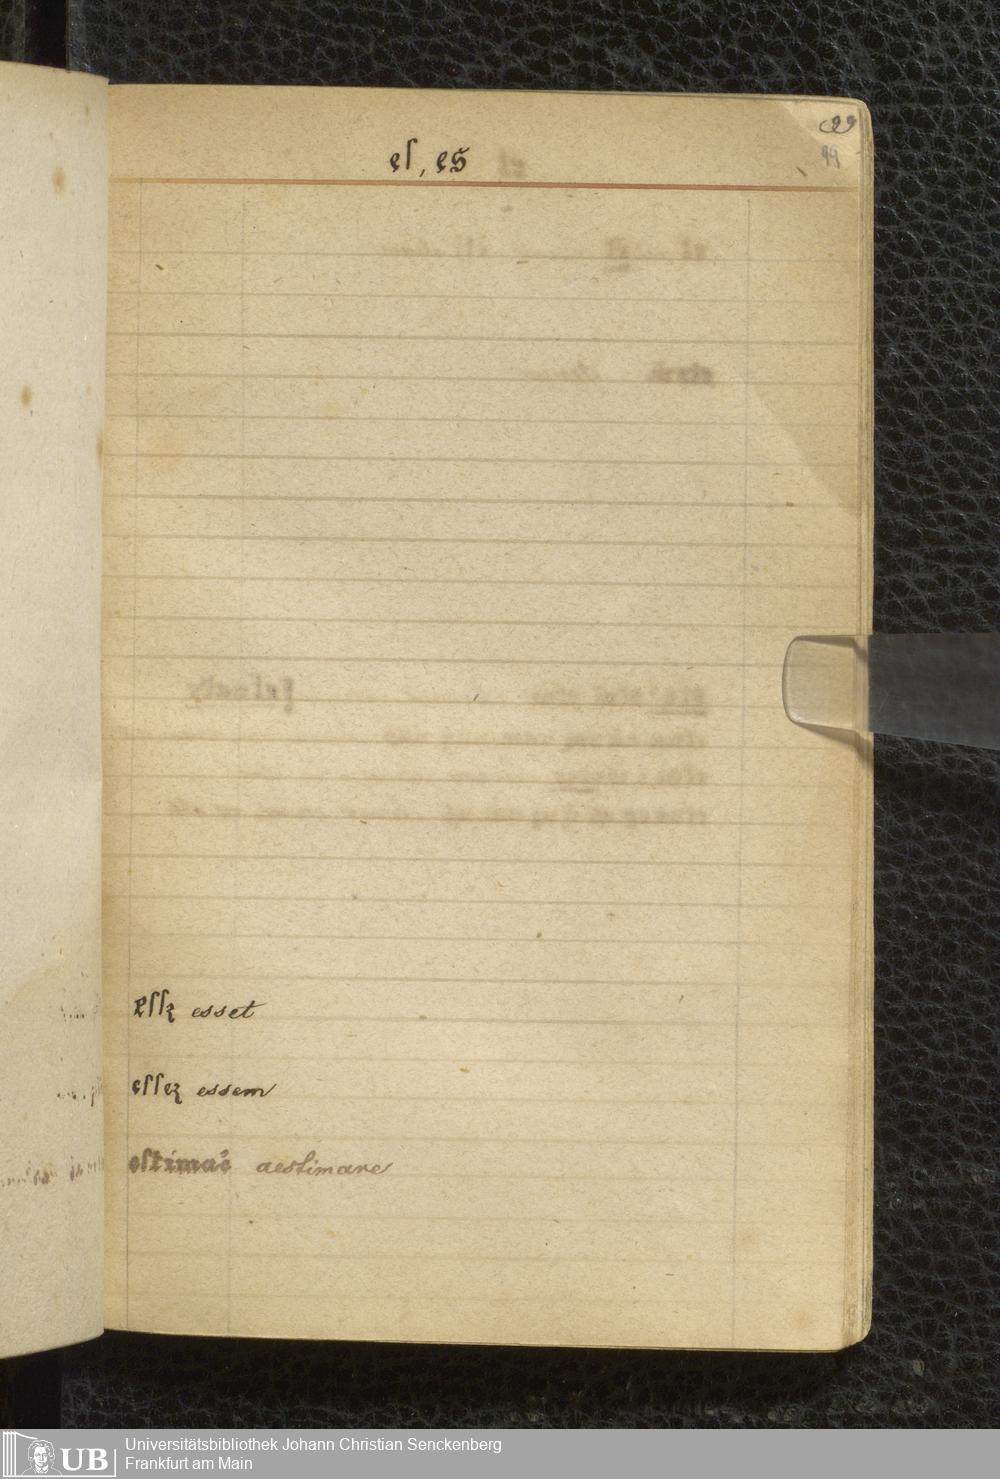 99
eſ, es
eſſꝫ esset
eſſeꝫ essem
eſtimaẻ aestimare
UB Universitätsbibliothek Johann Christian Senckenberg
Frankfurt am Main